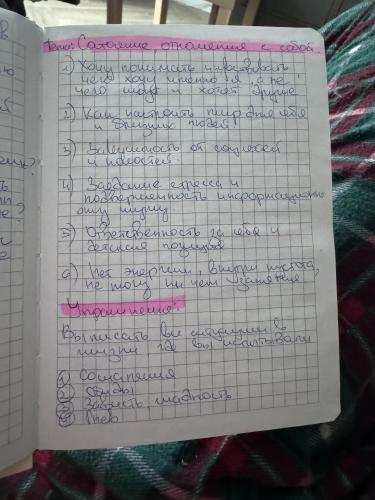 Тема: Сложение отношения с собой
1) Хочу понимать, чувствовать
чего хочу именно я, а не
чего ждут и хотят другие
2) Как настроить мир для себя
и близких людей!
3) Зависимость от соцсетей
и новостей
4) Заедание стресса и
подверженность информационно
му шуму
5) Ответственность за себя и
детская позиция
6) Нет энергии, внутри пустота,
не могу ни чем заняться
Упражнение:
Выписать все ситуации в
жизни где вы испытывали
1 Сожаления
2 Обиды
3 Зависть, жадность
4 Гнев